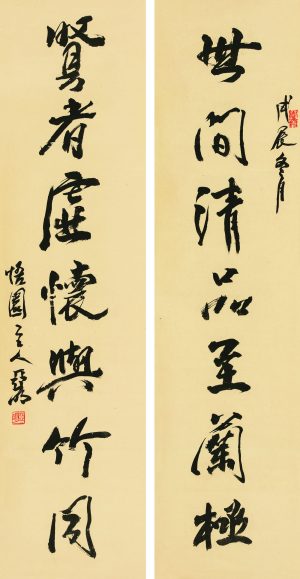 戊辰冬月
世間清品至蘭極
賢者虛懷與竹同
悟園主人亞明